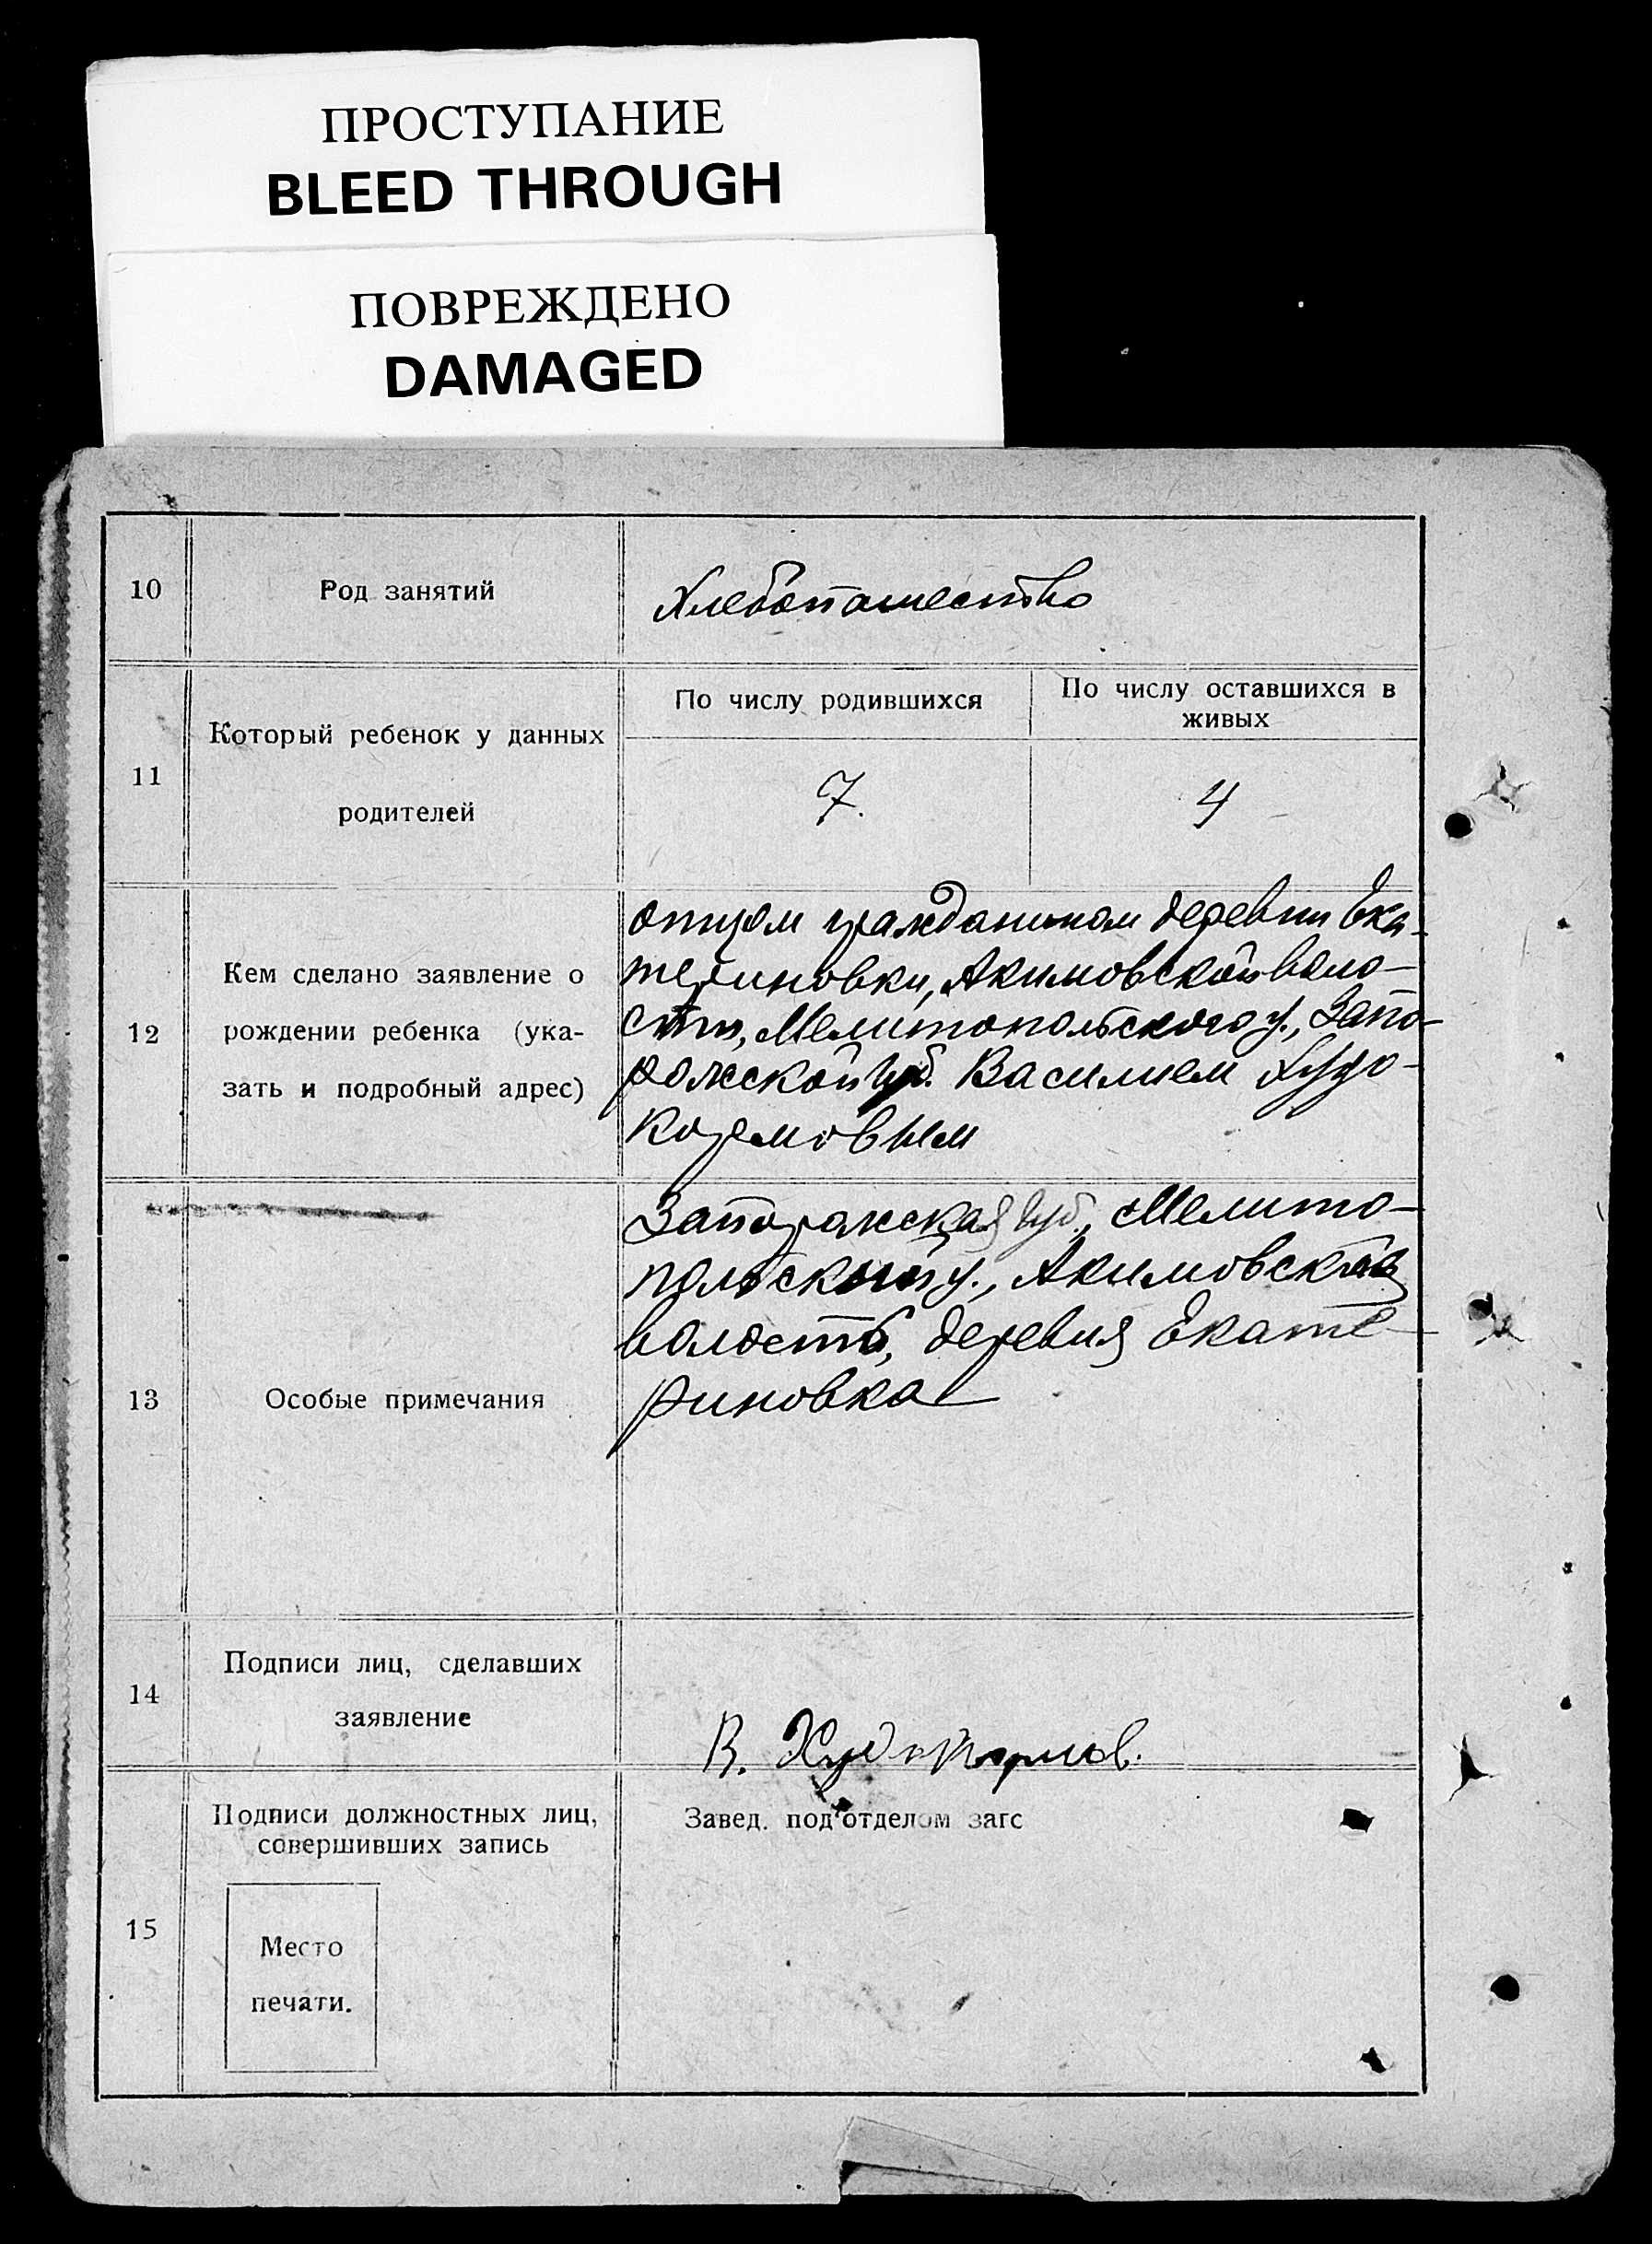 ПРОСТУПАНИЕ
BLEED THROUGH
ПОВРЕЖДЕНО
DAMAGED
10
Род занятий
Хлебопашество
11
Который ребенок у данных
родителей
По числу родившихся
По числу оставшихся в
живых
7.
4
12
Кем сделано заявление о
рождении ребенка (ука-
зать и подробный адрес)
отцом гражданином деревни Ека-
териновки, Акимовской воло-
сти, Мелитопольского у., Запо-
рожской губ. Василием Худо-
кормовым
13
Особые примечания
Запорожская губ., Мелито-
польский у., Акимовская
волость, деревня Екате-
риновка
14
Подписи лиц, сделавших
заявление
В. Худокормов.
15
Подписи должностных лиц,
совершивших запись
Место
печати.
Завед. подотделом загс